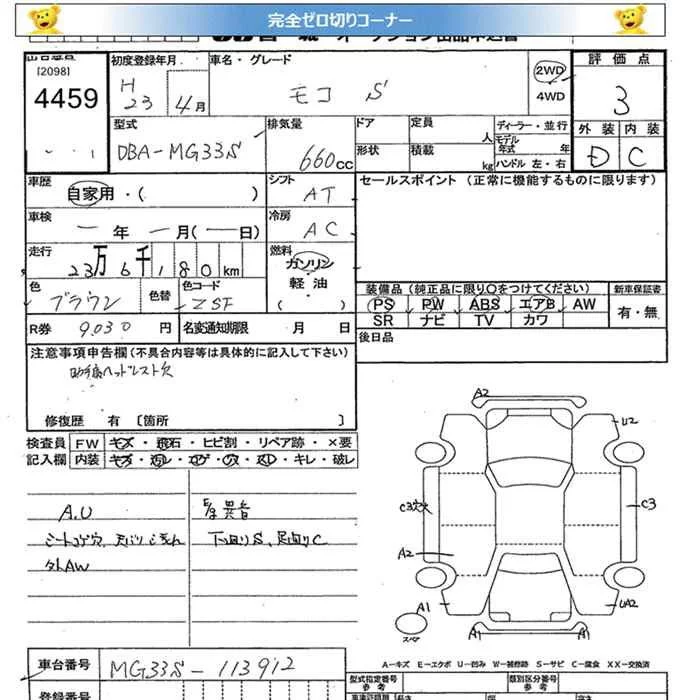 完全ゼロ切りコーナー
[2098]
4459
初度登録年月
H
23 4月
車名・グレード
モコ S
2WD
4WD
評価点
3
外装 内装
D C
型式
DBA-MG33S
排気量
660cc
ドア
形状
定員
人
積載
kg
ディーラー・並行
モデル年式 年
ハンドル 左・右
車歴
自家用・( )
シフト
AT
セールスポイント (正常に機能するものに限ります)
車検
年 月( 日)
冷房
AC
走行
23万6千180km
燃料
ガソリン
軽油
( )
色
ブラウン
色替
色コード
ZSF
装備品 (純正品に限り○をつけてください)
新車保証書
PS PW ABS エアB AW
SR ナビ TV カワ
有・無
R券 9,030円
名変通知期限 月 日
後日品
注意事項申告欄(不具合内容等は具体的に記入して下さい)
助手席ヘッドレスト欠
修復歴 有 [箇所 ]
検査員
記入欄
FW キズ・飛石・ヒビ割・リペア跡・×要
内装 キズ・汚レ・コゲ・穴・スレ・キレ・破レ
A.U
シートコゲ穴、
外AW
E/g異音
下回りS、足回りC
A2
U2
C3欠
C3
A2
A1
UA2
スペア
A1
A1
A-キズ E-エクボ U-凹み W-補修跡 S-サビ C-腐食 XX-交換済
車台番号
MG33S-113912
型式指定番号
参考
類別区分番号
参考
登録番号